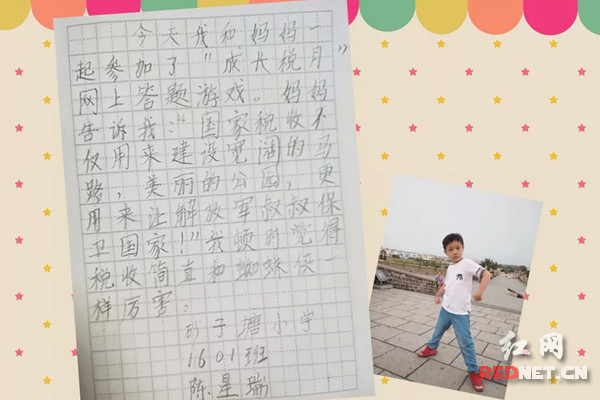 今天我和妈妈一
起参加了“成长税月”
网上答题游戏。妈妈
告诉我:“国家税收不
仅用来建设宽阔的马
路,美丽的公园,更
用来让解放军叔叔保
卫国家!”我顿时觉得
税收简直和蜘蛛侠一
样厉害。
砂子塘小学
1601班
陈星瑞
红网
REDNET.CN